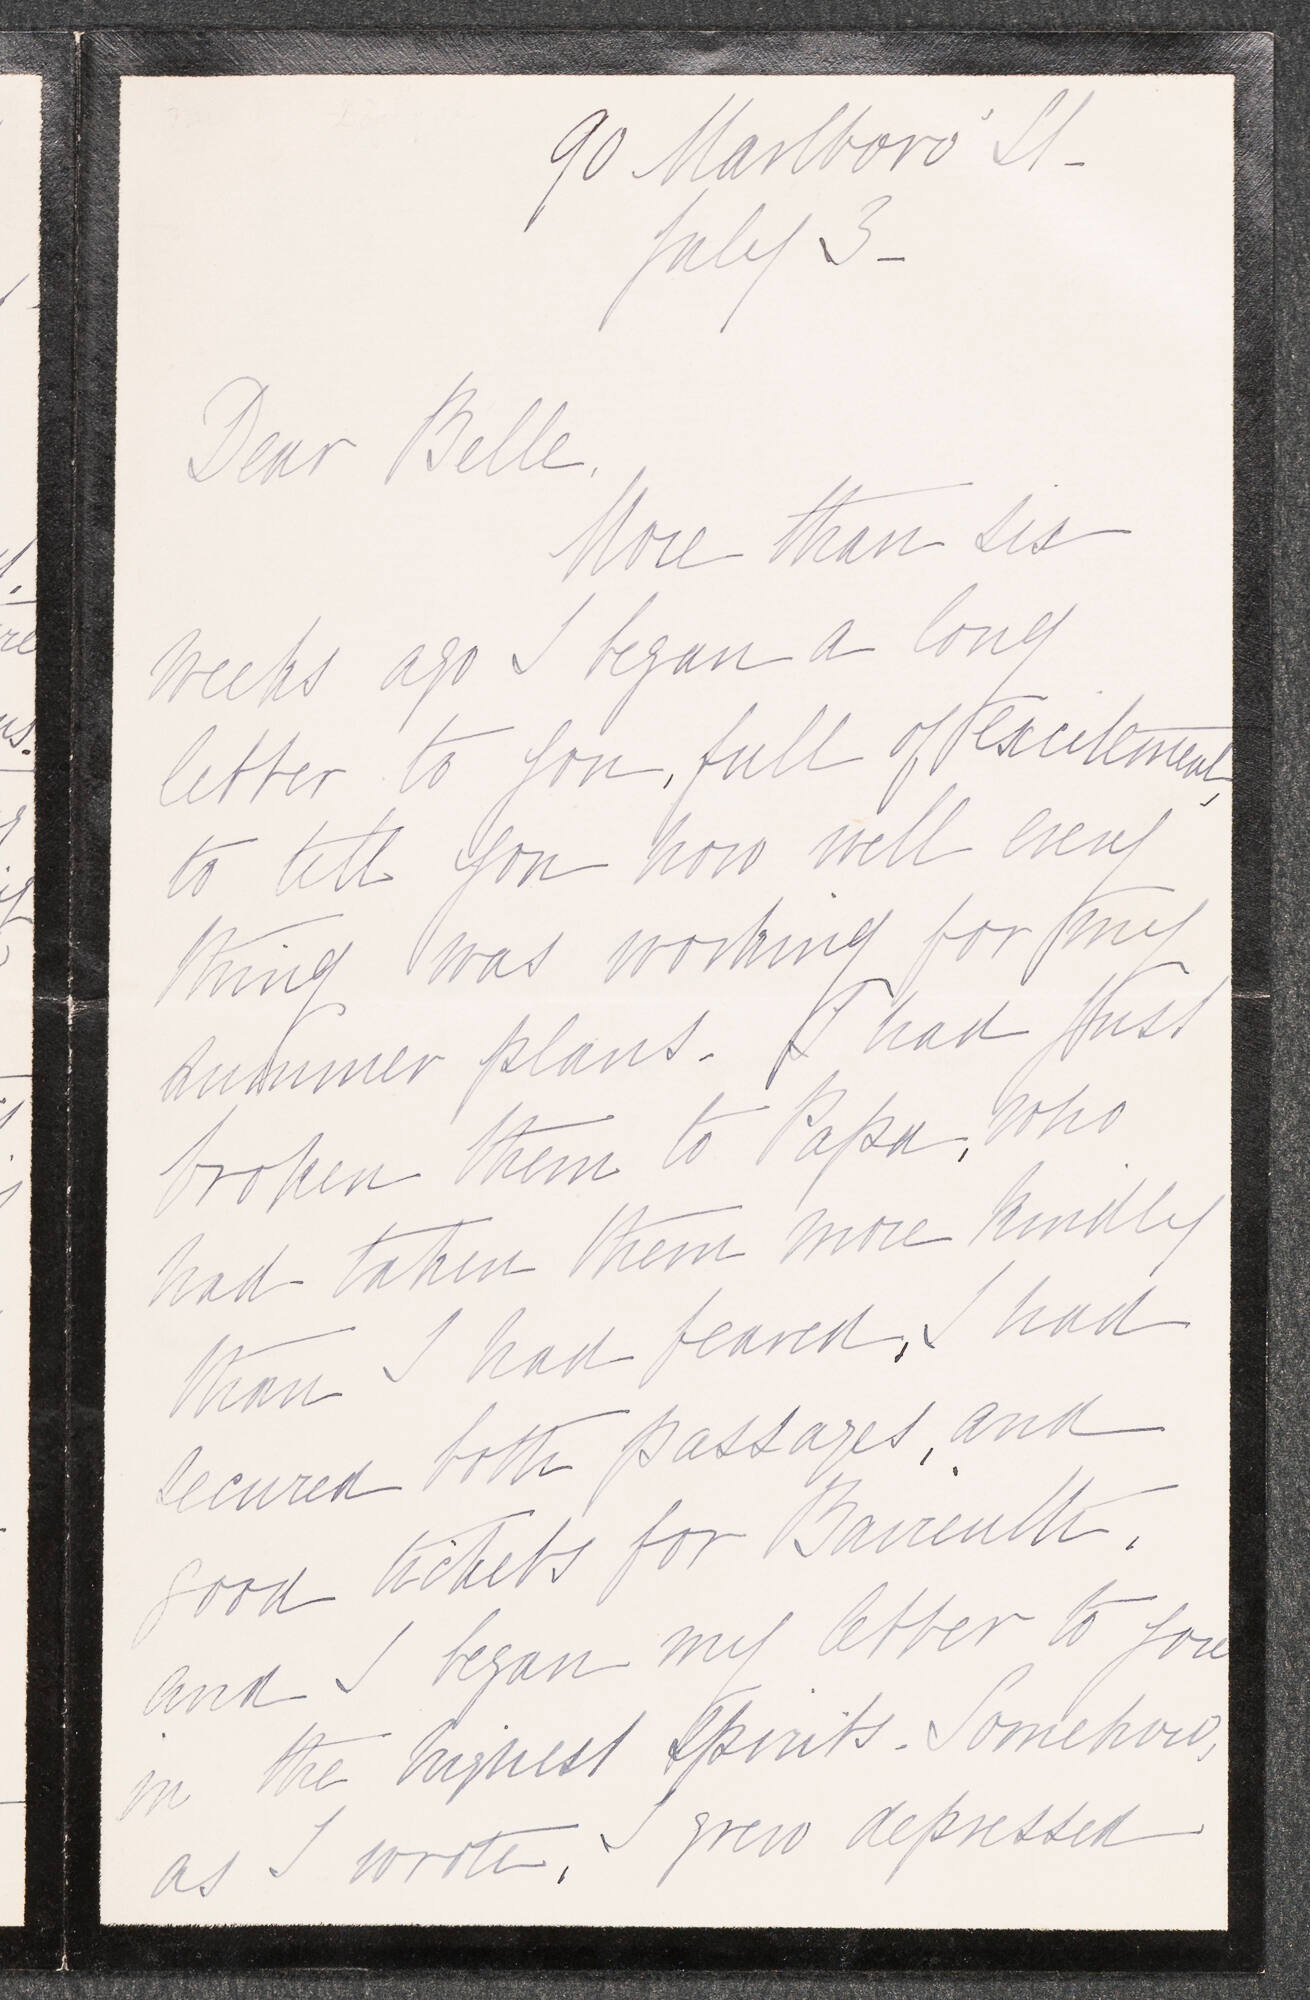 90 Marlboro' St-
July 3-
Dear Belle.
More than six
weeks ago I began a long
letter to you, full of excitement,
to tell you how well every
thing was working for my
summer plans. I had just
broken them to Papa, who
had taken them more kindly
than I had feared, I had
secured both passages, and
good tickets for Baireuth.
and I began my letter to you
in the highest spirits. Somehow,
as I wrote, I grew depressed